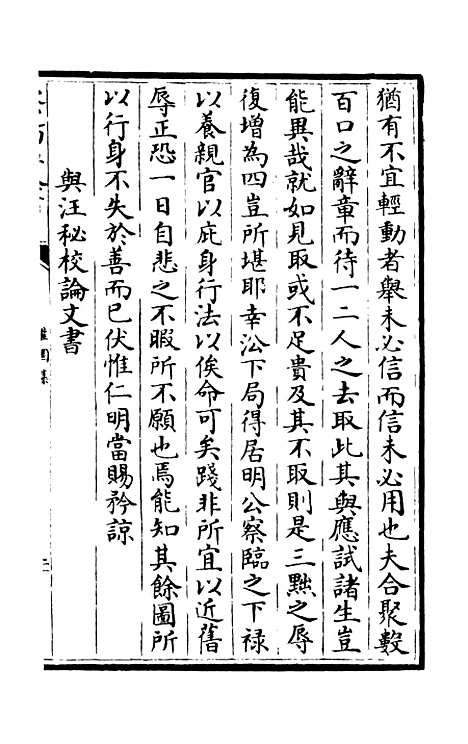 猶有不宜輕動者舉未必信而信未必用也夫合聚數
百口之辭章而待一二人之去取此其與應試諸生豈
能異哉就如見取或不足貴及其不取則是三黜之辱
復增為四豈所堪耶幸訟下局得居明公察臨之下祿
以養親官以庇身行法以俟命可矣踐非所宜以近舊
辱正恐一日自悲之不暇所不願也焉能知其餘圖所
以行身不失於善而已伏惟仁明當賜矜諒
與汪秘校論文書